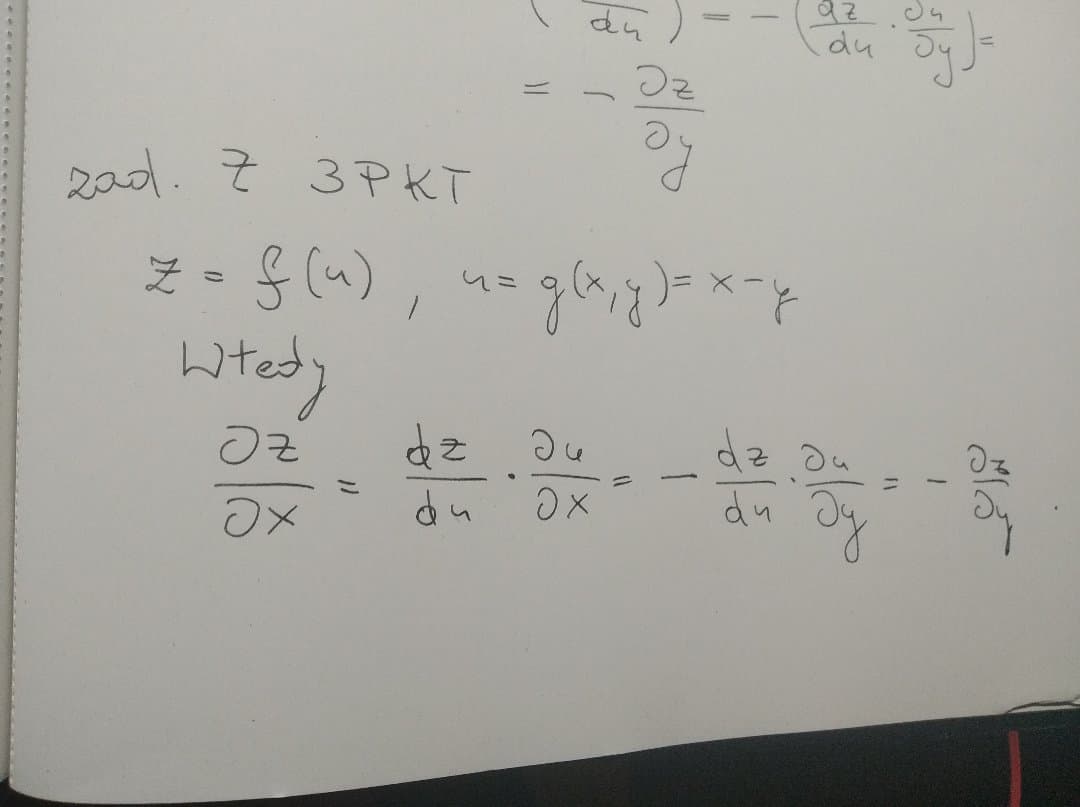 du ) = - ( dz/du · ∂u/∂y ) =
= - ∂z/∂y
zad. 7 3PKT
z = f(u), u = g(x,y) = x-y
Wtedy
∂z/∂x = dz/du · ∂u/∂x = - dz/du · ∂u/∂y = - ∂z/∂y .